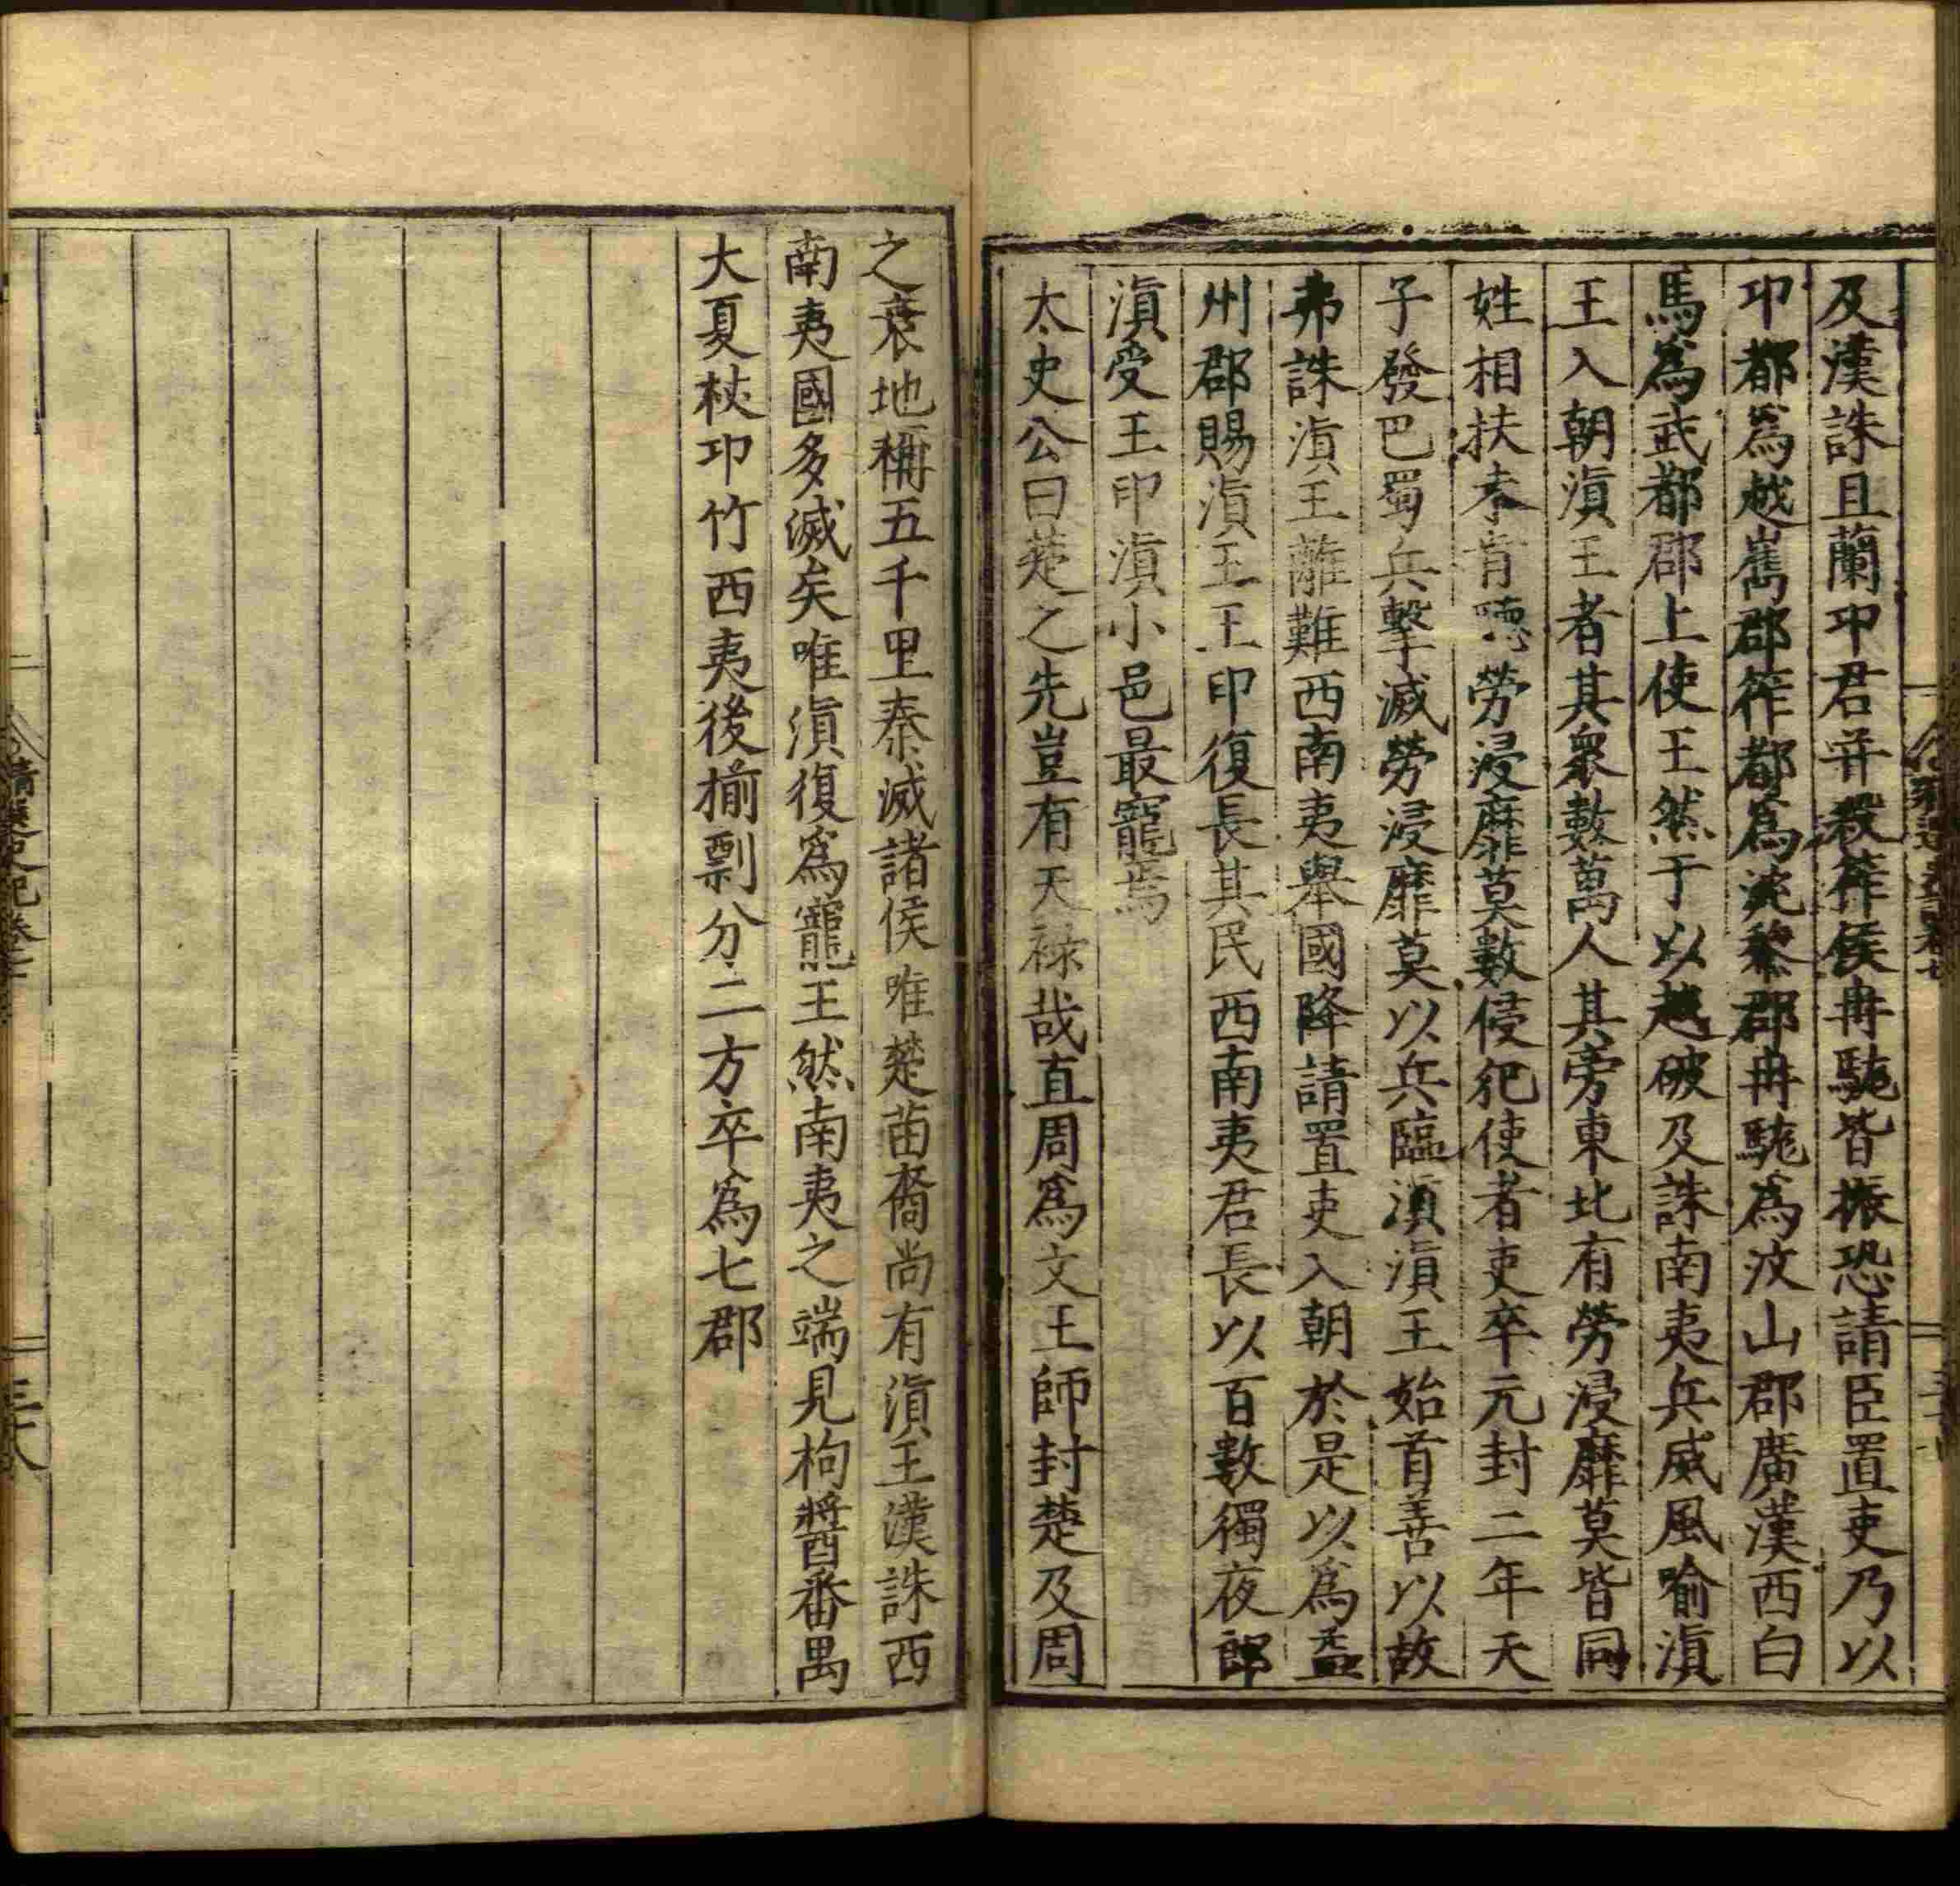 及漢誅且蘭卭君并殺筰侯冉駹皆振恐請臣置吏乃以
卭都爲越嶲郡筰都爲沈黎郡冉駹爲汶山郡廣漢西白
馬爲武都郡上使王然于以越破及誅南夷兵威風喻滇
王入朝滇王者其衆數萬人其旁東北有勞浸靡莫皆同
姓相扶未肯聽勞浸靡莫數侵犯使者吏卒元封二年天
子發巴蜀兵擊滅勞浸靡莫以兵臨滇滇王始首善以故
弗誅滇王離難西南夷舉國降請置吏入朝於是以爲益
州郡賜滇王王印復長其民西南夷君長以百數獨夜郎
滇受王印滇小邑最寵焉
太史公曰楚之先豈有天祿哉直周爲文王師封楚及周
之衰地稱五千里秦滅諸侯唯楚苗裔尚有滇王漢誅西
南夷國多滅矣唯滇復爲寵王然南夷之端見枸醬番禺
大夏杖卭竹西夷後揃剽分二方卒爲七郡